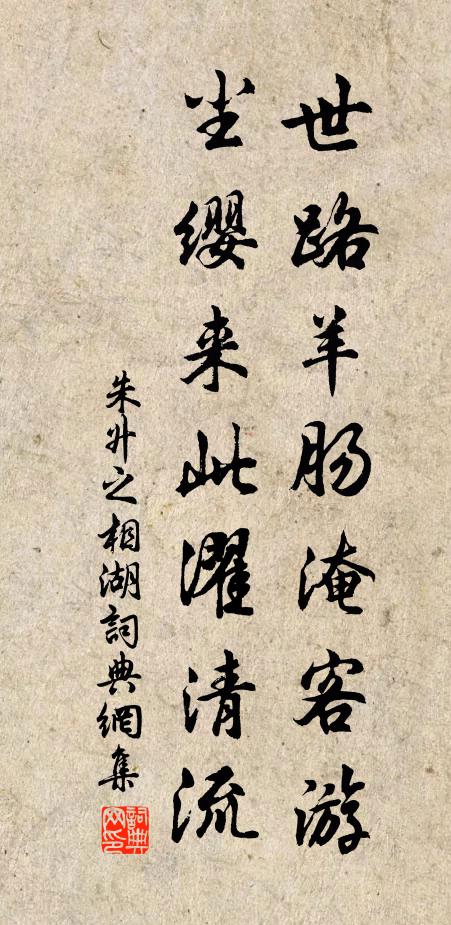 世路羊肠淹客游
尘缨来此濯清流
朱升之相湖詞典網集
詞典网印